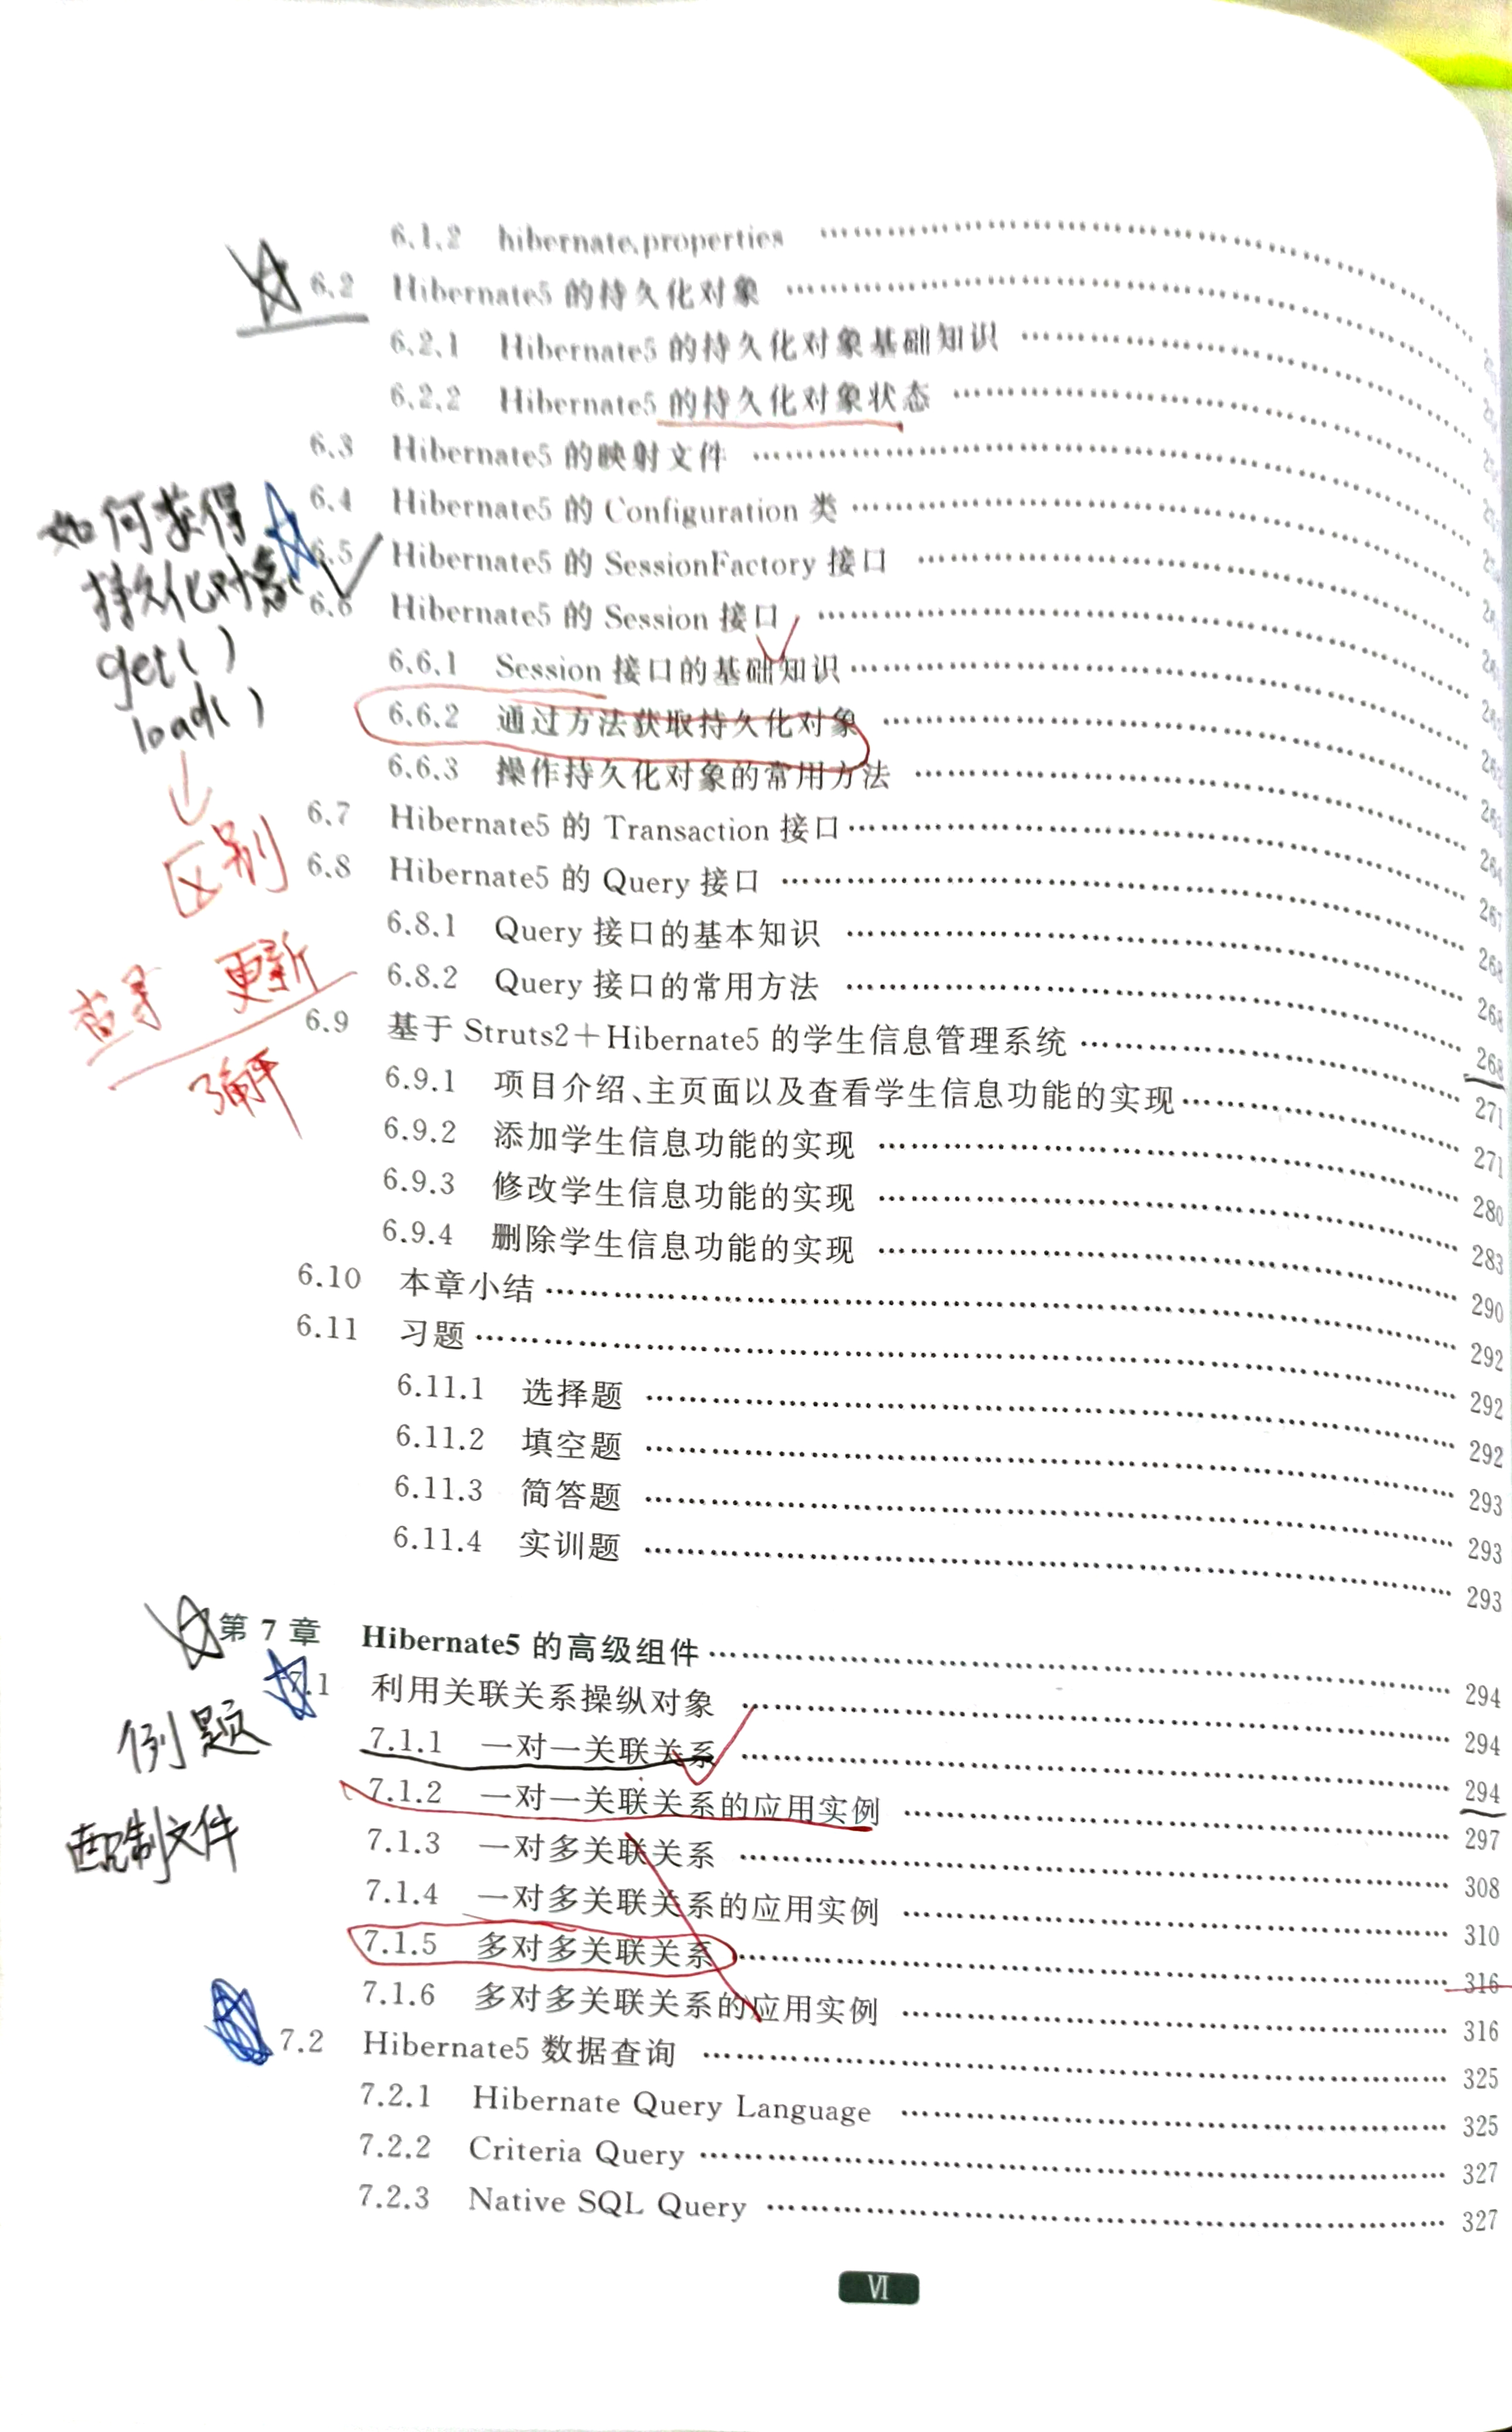 6.1.2 hibernate.properties
6.2 Hibernate5 的持久化对象
6.2.1 Hibernate5 的持久化对象基础知识
6.2.2 Hibernate5 的持久化对象状态
6.3 Hibernate5 的映射文件
6.4 Hibernate5 的 Configuration 类
6.5 Hibernate5 的 SessionFactory 接口
6.6 Hibernate5 的 Session 接口
如何获得
持久化对象
get()
load()
区别
6.6.1 Session 接口的基础知识
6.6.2 通过方法获取持久化对象
6.6.3 操作持久化对象的常用方法
6.7 Hibernate5 的 Transaction 接口
6.8 Hibernate5 的 Query 接口
6.8.1 Query 接口的基本知识
6.8.2 Query 接口的常用方法 268
更新
了解
6.9 基于 Struts2+Hibernate5 的学生信息管理系统 271
6.9.1 项目介绍、主页面以及查看学生信息功能的实现 271
6.9.2 添加学生信息功能的实现 280
6.9.3 修改学生信息功能的实现 283
6.9.4 删除学生信息功能的实现 290
6.10 本章小结 292
6.11 习题 292
6.11.1 选择题 292
6.11.2 填空题 293
6.11.3 简答题 293
6.11.4 实训题 293
第 7 章 Hibernate5 的高级组件 294
7.1 利用关联关系操纵对象 294
例题
配制文件
7.1.1 一对一关联关系 294
7.1.2 一对一关联关系的应用实例 297
7.1.3 一对多关联关系 308
7.1.4 一对多关联关系的应用实例 310
7.1.5 多对多关联关系 316
7.1.6 多对多关联关系的应用实例 316
7.2 Hibernate5 数据查询 325
7.2.1 Hibernate Query Language 325
7.2.2 Criteria Query 327
7.2.3 Native SQL Query 327
VI